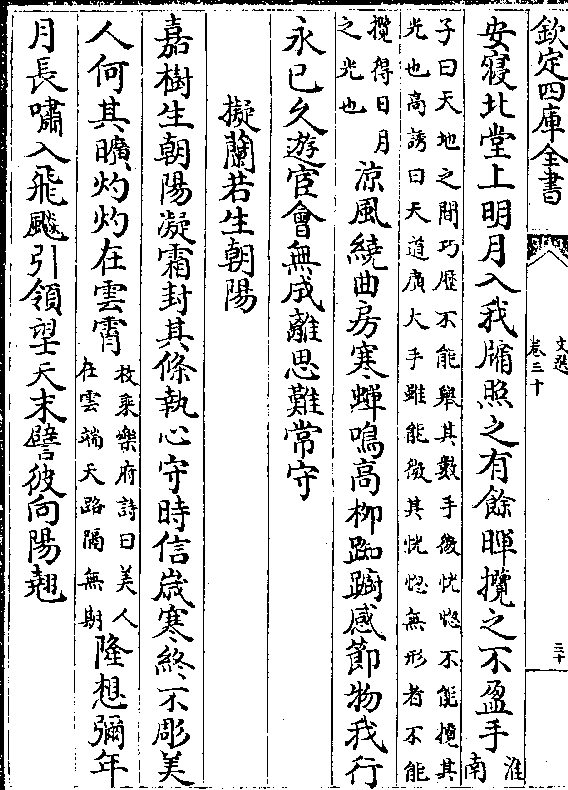 欽定四庫全書
文選
卷三十
三十
安寢北堂上明月入我牖照之有餘暉攬之不盈手淮南
子曰天地之間巧歴不能舉其數手徵怳惚不能攬其
光也高誘曰天道廣大手雖能徵其怳惚無形者不能
攬得日月
之光也
涼風繞曲房寒蟬鳴高柳踟躕感節物我行
永已久遊宦會無成離思難常守
擬蘭若生朝陽
嘉樹生朝陽凝霜封其條執心守時信歲寒終不彫美
人何其曠灼灼在雲霄
枚乘樂府詩曰美人
在雲端天路隔無期
隆想彌年
月長嘯入飛飈引領望天末譬彼向陽翹